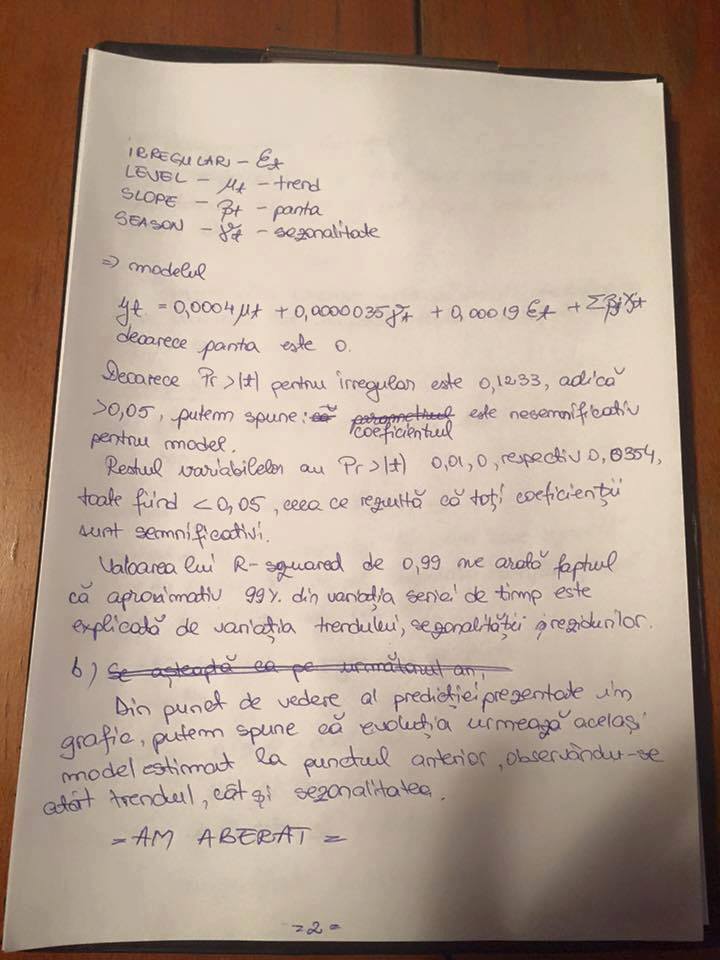 IRREGULAR - εt
LEVEL - μt - trend
SLOPE - βt - panta
SEASON - γt - sezonalitate
⇒ modelul
yt = 0,0004 μt + 0,0000035 γt + 0,00019 εt + Σβjxjt
deoarece panta este 0.
Deoarece Pr > |t| pentru irregular este 0,1233, adică
>0,05, putem spune: că parametrul este nesemnificativ
coeficientul
pentru model.
Restul variabilelor au Pr > |t| 0,01, 0, respectiv 0,0354,
toate fiind < 0,05, ceea ce rezultă că toți coeficienții
sunt semnificativi.
Valoarea lui R-squared de 0,99 ne arată faptul
că aproximativ 99% din variația seriei de timp este
explicată de variația trendului, sezonalității și rezidurilor.
b) Se așteaptă ca pe următorul an,
Din punct de vedere al predicției prezentate în
grafic, putem spune că evoluția urmează același
model estimat la punctul anterior, observându-se
atât trendul, cât și sezonalitatea.
= AM ABERAT =
= 2 =